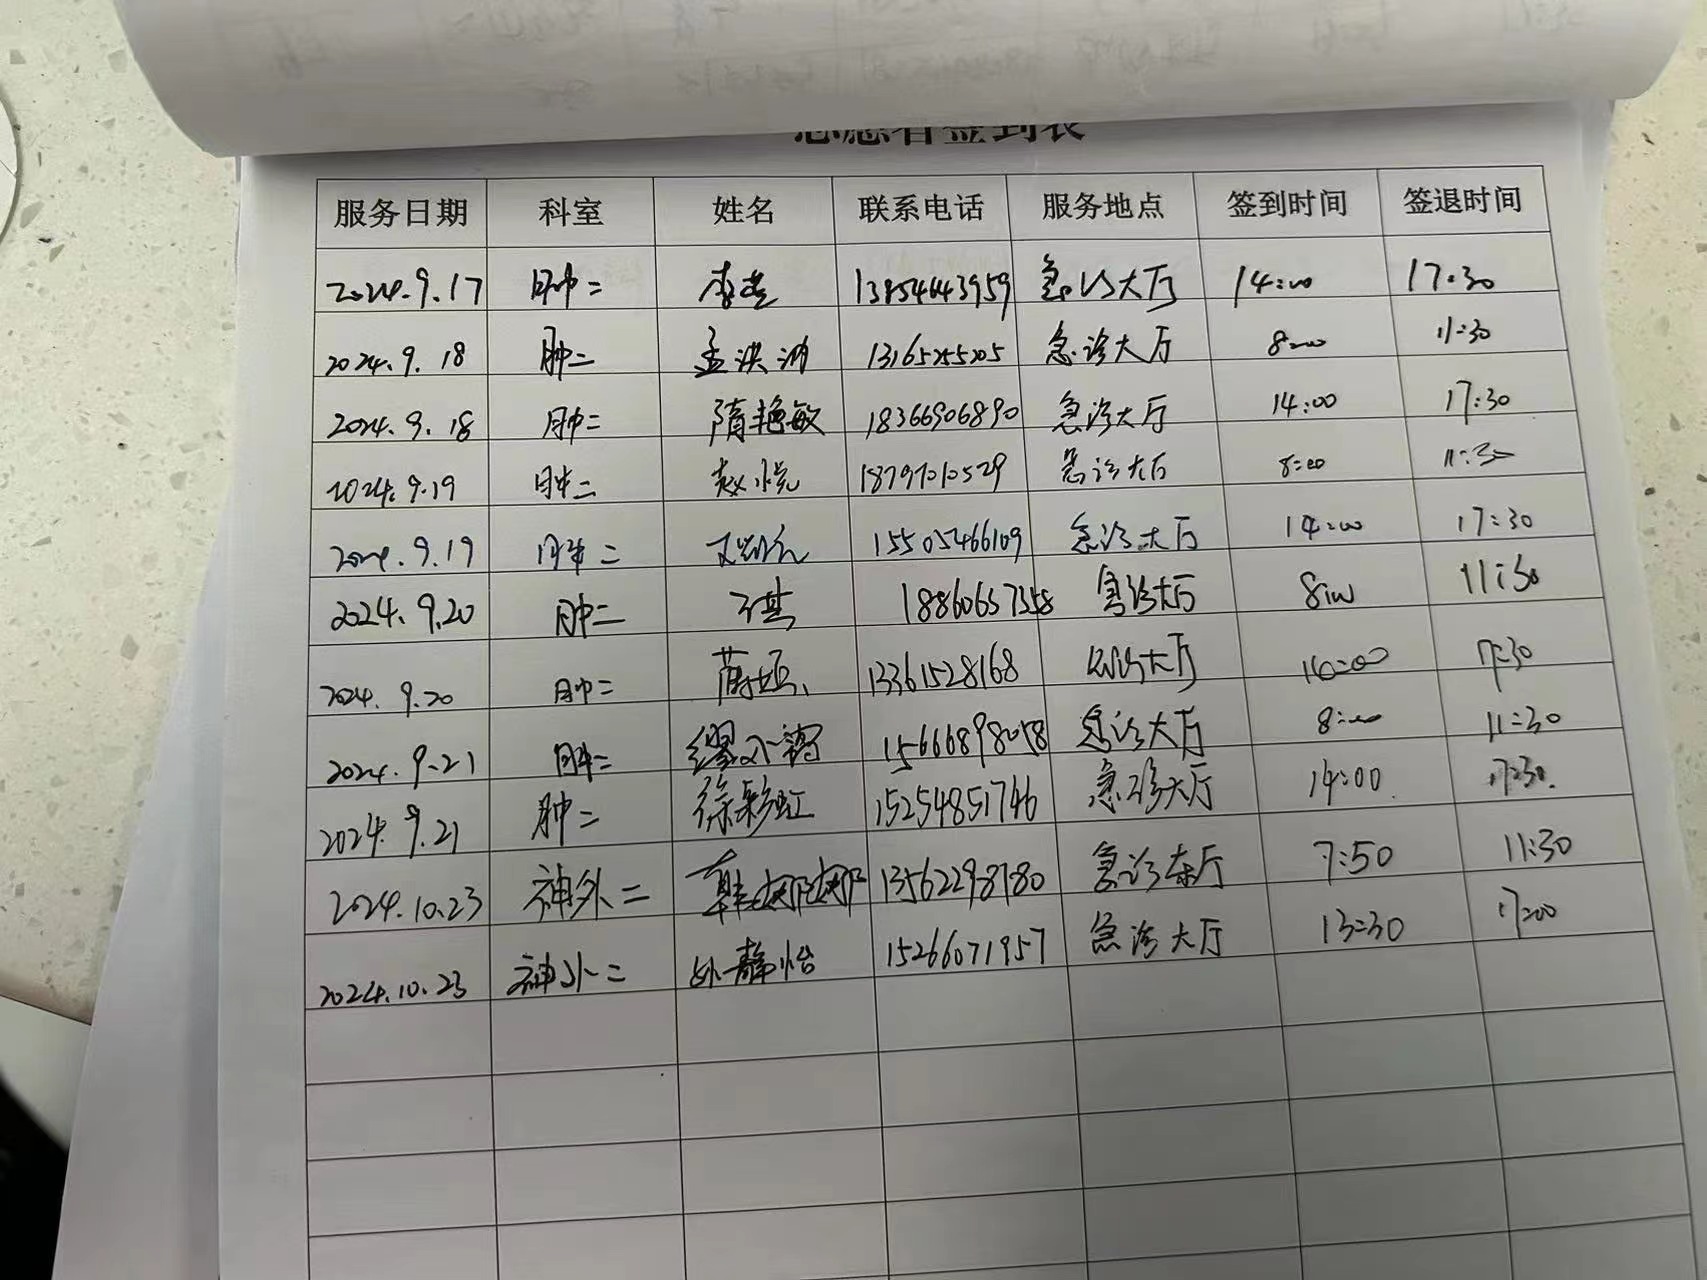 志愿者签到表
服务日期 科室 姓名 联系电话 服务地点 签到时间 签退时间
2024.9.17 肿二 13854643959 急诊大厅 14:00 17:30
2024.9.18 肿二 孟洪 13165255205 急诊大厅 8:00 11:30
2024.9.18 肿二 隋艳敏 18366906890 急诊大厅 14:00 17:30
2024.9.19 肿二 赵悦 急诊大厅 8:00 11:30
2024.9.19 肿二 15505466109 急诊大厅 14:00 17:30
2024.9.20 肿二 18860657358 急诊大厅 8:00 11:30
2024.9.20 肿二 13361528168 急诊大厅 17:30
2024.9.21 肿二 15666898058 急诊大厅 8:00 11:30
2024.9.21 肿二 徐彩虹 15254851746 急诊大厅 14:00 17:30
2024.10.23 神外二 韩娜娜 13562298780 急诊大厅 7:50 11:30
2024.10.23 神外二 静怡 15266071957 急诊大厅 13:30 17:00